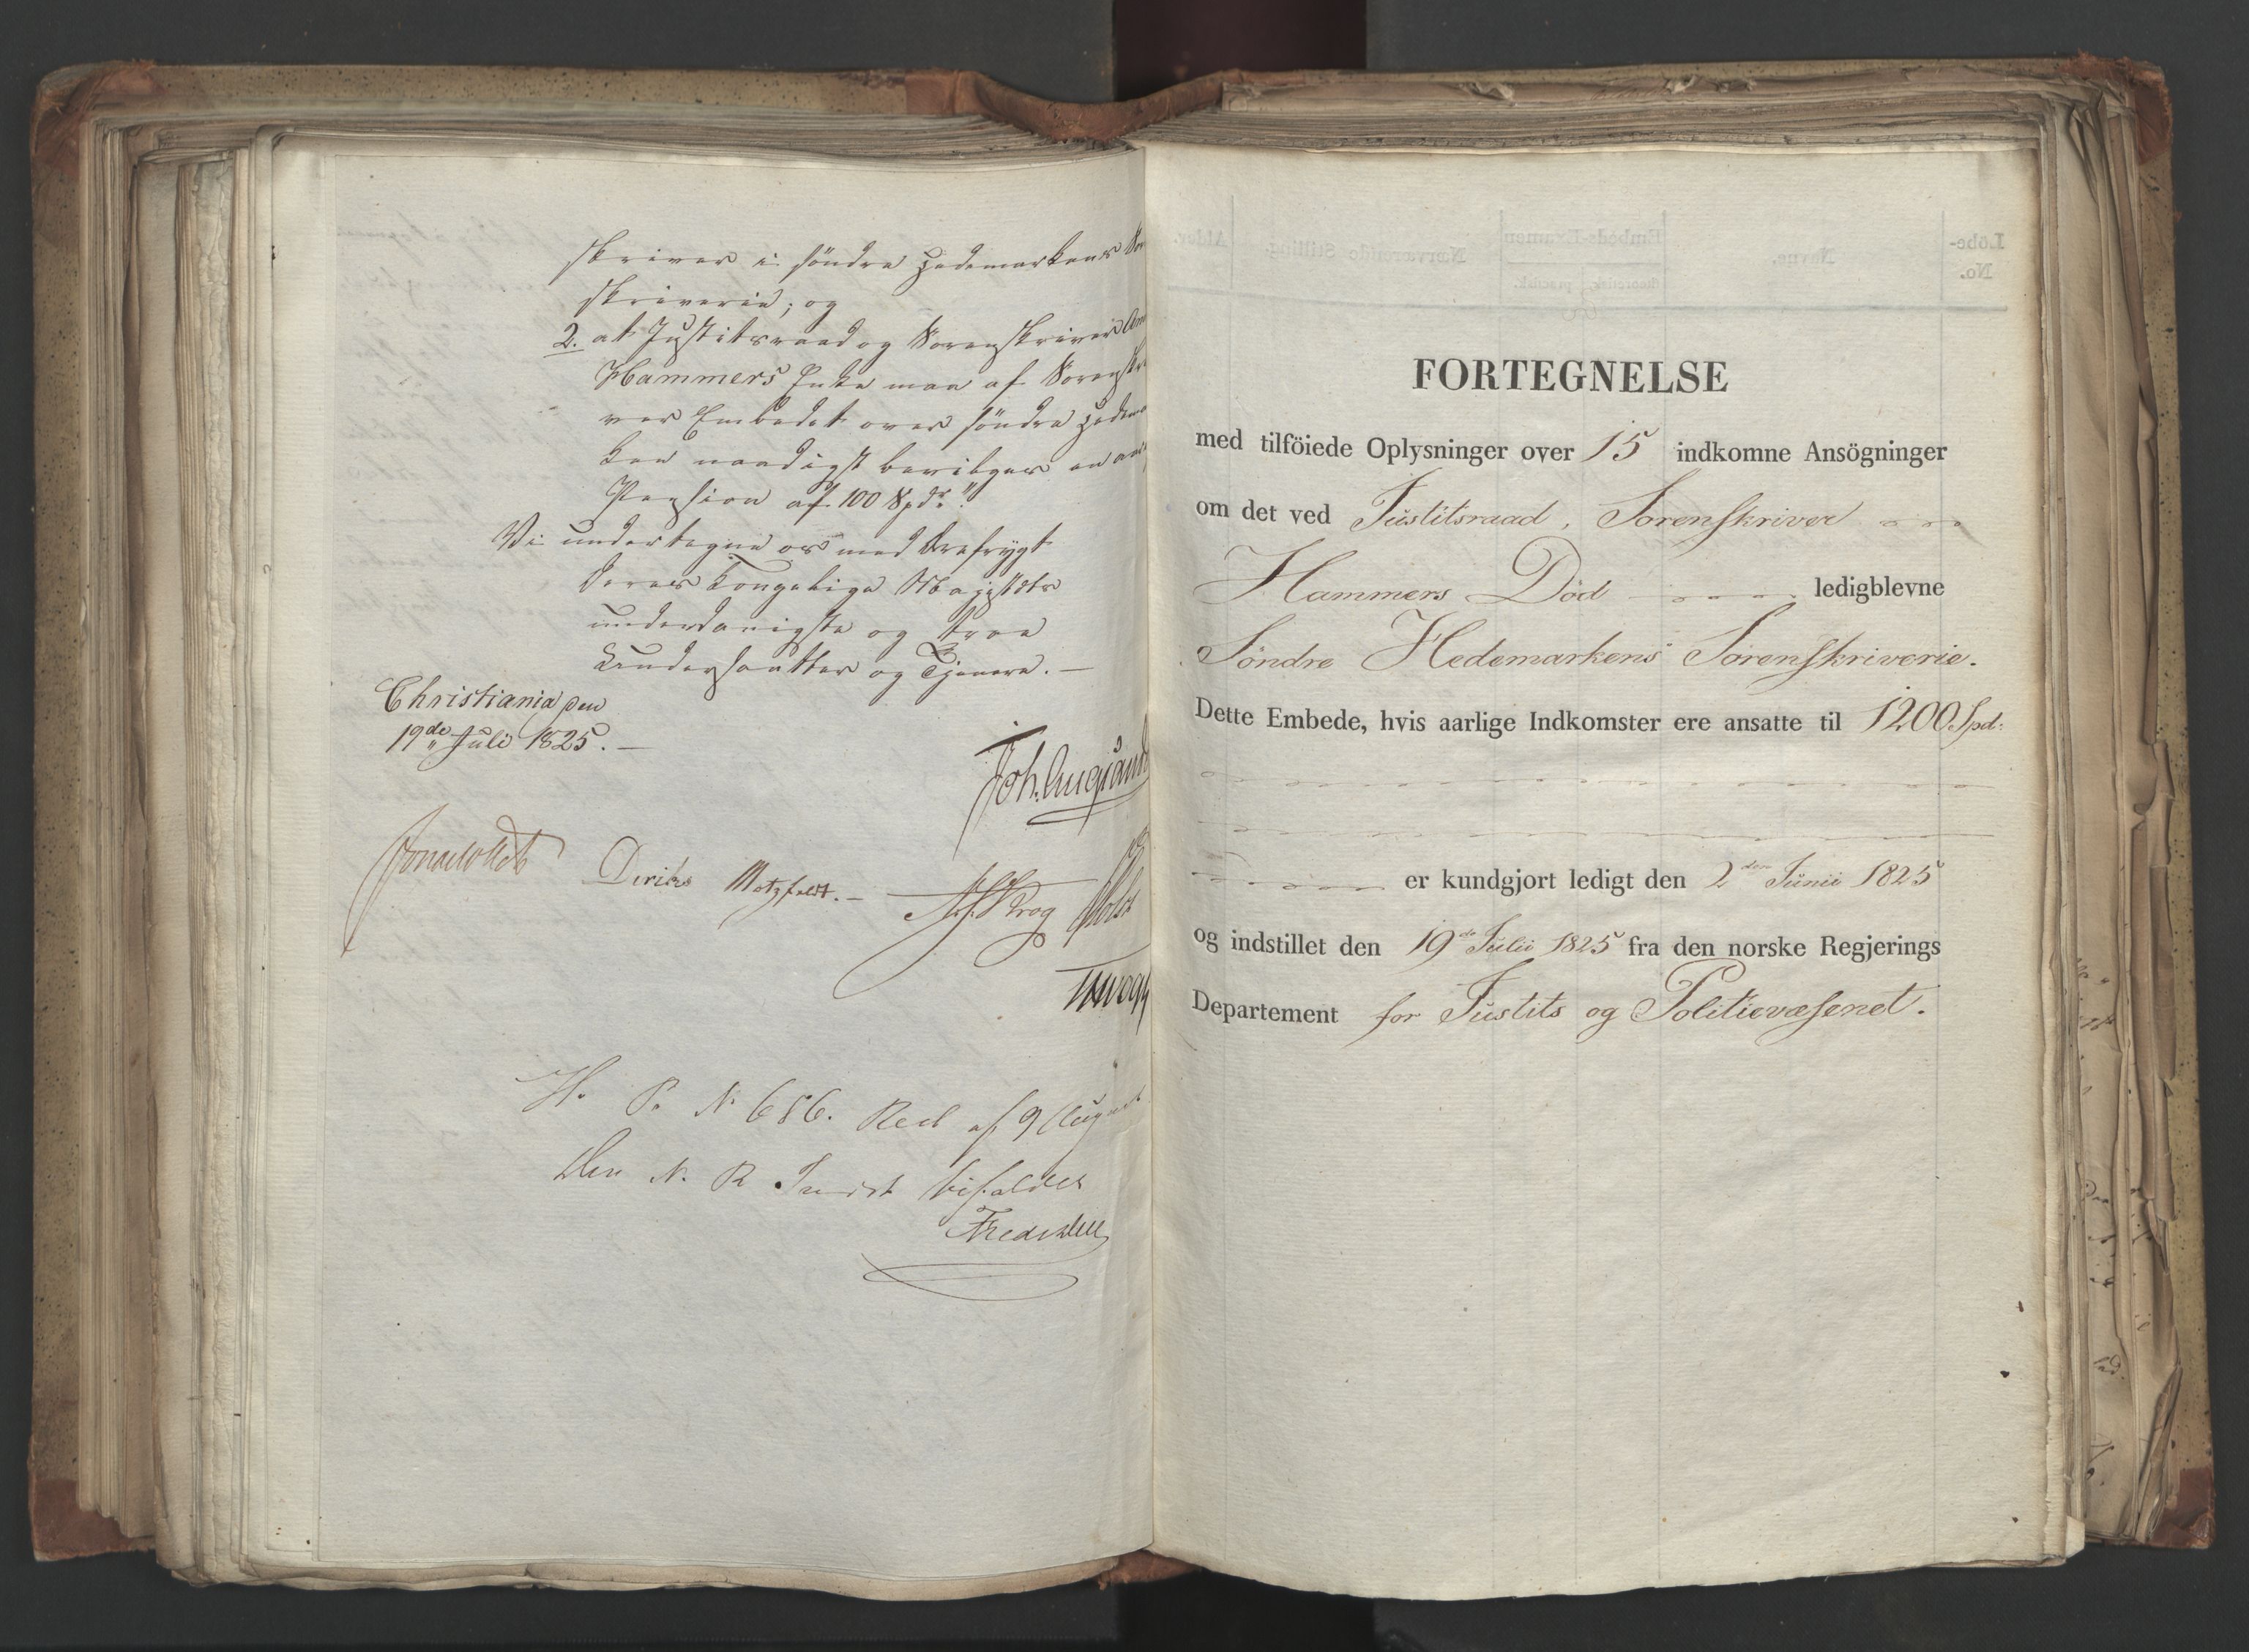 skriver i söndre Hedemarkens Sor
skriverie; og
2. at Justitsraad og Sorenskriver
Hammers Enke maa af Sorenskri
ver Embedet over söndre Hedemar
ken naadigst bevilges en
Pension af 100 Spdr."
Vi undertegne os med Ærefrygt
Deres Kongelige Majestæts
underdanigste og troe
Undersaatter og Tjenere. —
Christiania den
19de Juli 1825. —
Diriks Motzfeldt. — Krog Holst
H. P. N. 686. Res af 9 August
Den N. R Indst bifaldes
FORTEGNELSE
med tilföiede Oplysninger over 15 indkomne Ansögninger
om det ved Justitsraad, Sorenskriver
Hammers Död ledigblevne
Söndre Hedemarkens Sorenskriverie.
Dette Embede, hvis aarlige Indkomster ere ansatte til 1200 Spd:
er kundgjort ledigt den 2den Junii 1825
og indstillet den 19de Julii 1825 fra den norske Regjerings
Departement for Justits og Politievæsenet.